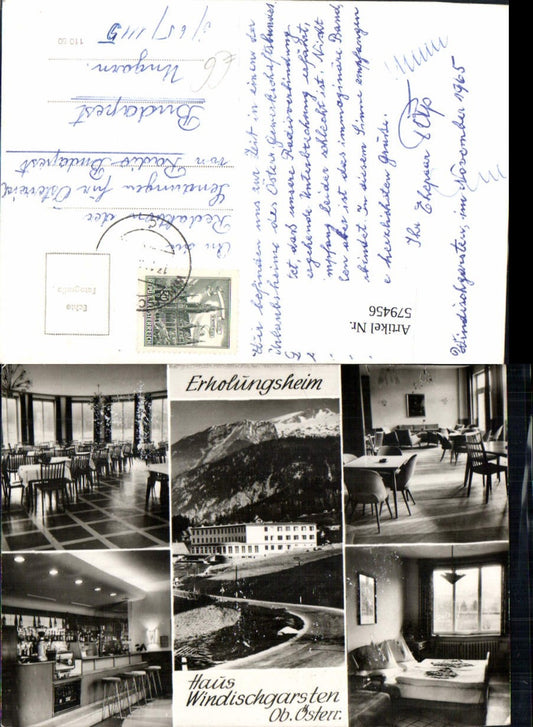 Windischgarsten, im November 1965
Wir befinden uns zur Zeit in einem der
Urlaubsheime des Österr. Gewerkschaftsbundes.
ist, daß unsere Radioverbindung
gehende Unterbrechung erfährt,
mpfang leider schlecht ist. Nicht
ten aber ist das immaginäre Band,
bindet. In diesem Sinne empfangen
e herzlichsten Grüße.
Ihr Ehepaar
An die
Redaktion der
Sendungen für Österreich
von Radio Budapest
Budapest
Ungarn.
110 50
Echte
Fotografie
Artikel Nr.
579456
Erholungsheim
Haus
Windischgarsten
Ob. Österr.